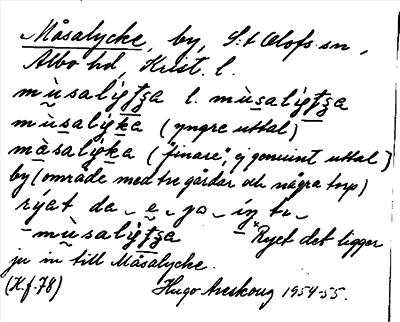 Måsalycke, by, S:t Olofs sn,
Albo hd, Krist. l.
mùsalyţʒa l. mùsalyţʒa
mùsalyka (yngre uttal)
måsalyka ("finare", ej genuint uttal)
by (område med tre gårdar och några torp)
rýat da_e_
mùsalyţʒa "Ryet det ligger
ju in till Måsalycke.
(K.f.78) Hugo Areskoug 1954-55.